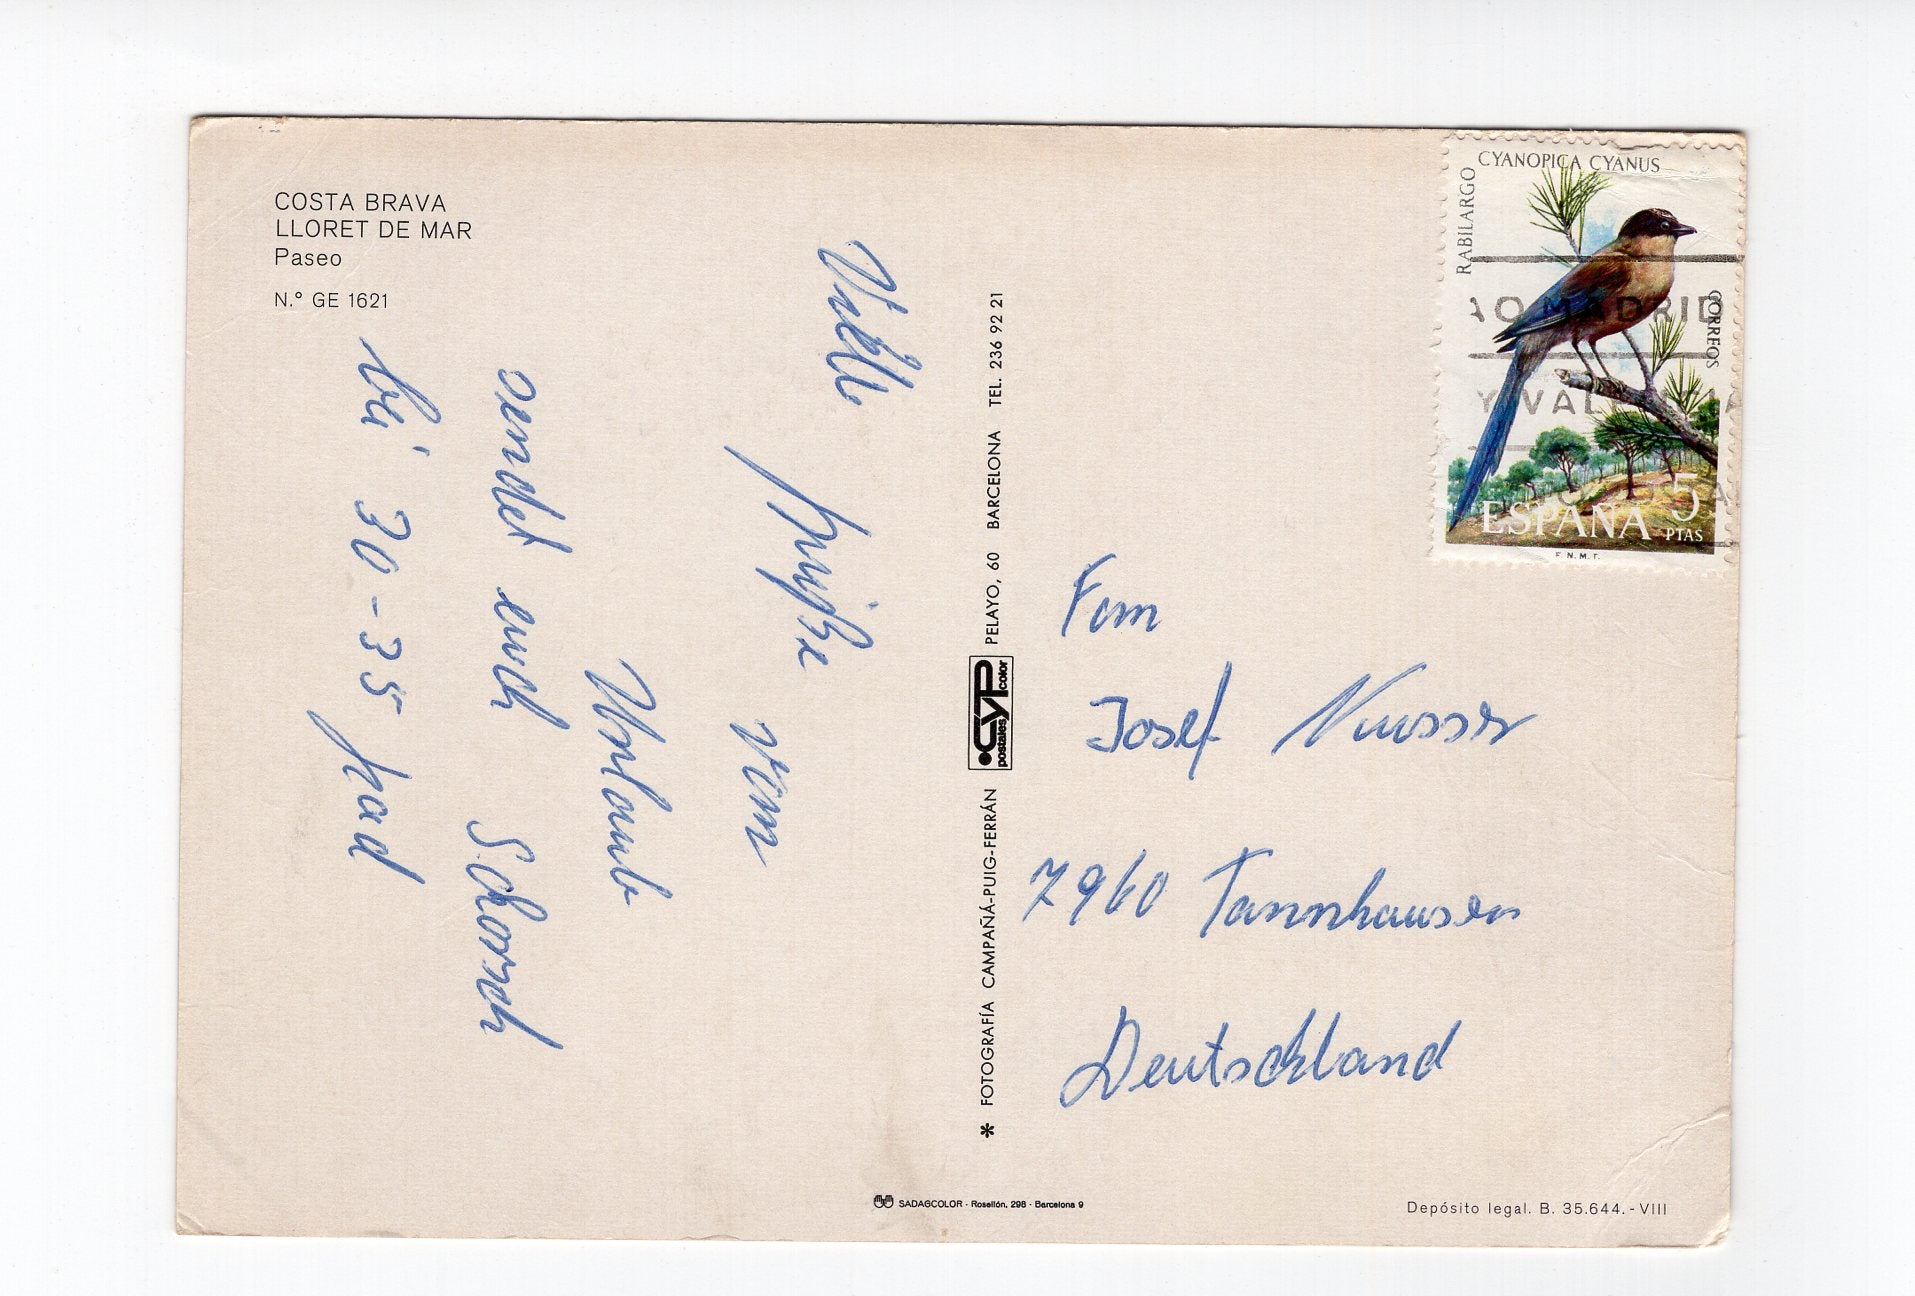 COSTA BRAVA
LLORET DE MAR
Paseo
N.° GE 1621
Viele
Grüße
vom
Urlaub
sendet euch Schorsch
bei 30-35 Grad
* FOTOGRAFÍA CAMPAÑÁ-PUIG-FERRÁN
CYP
postales color
PELAYO, 60 BARCELONA TEL. 236 92 21
CYANOPICA CYANUS
RABILARGO
CORREOS
ESPAÑA 5 PTAS
F.N.M.T.
MADRID
Fam
Josef Nusser
7960 Tannhausen
Deutschland
SADAGCOLOR - Rosellón, 298 - Barcelona 9
Depósito legal. B. 35.644.-VIII